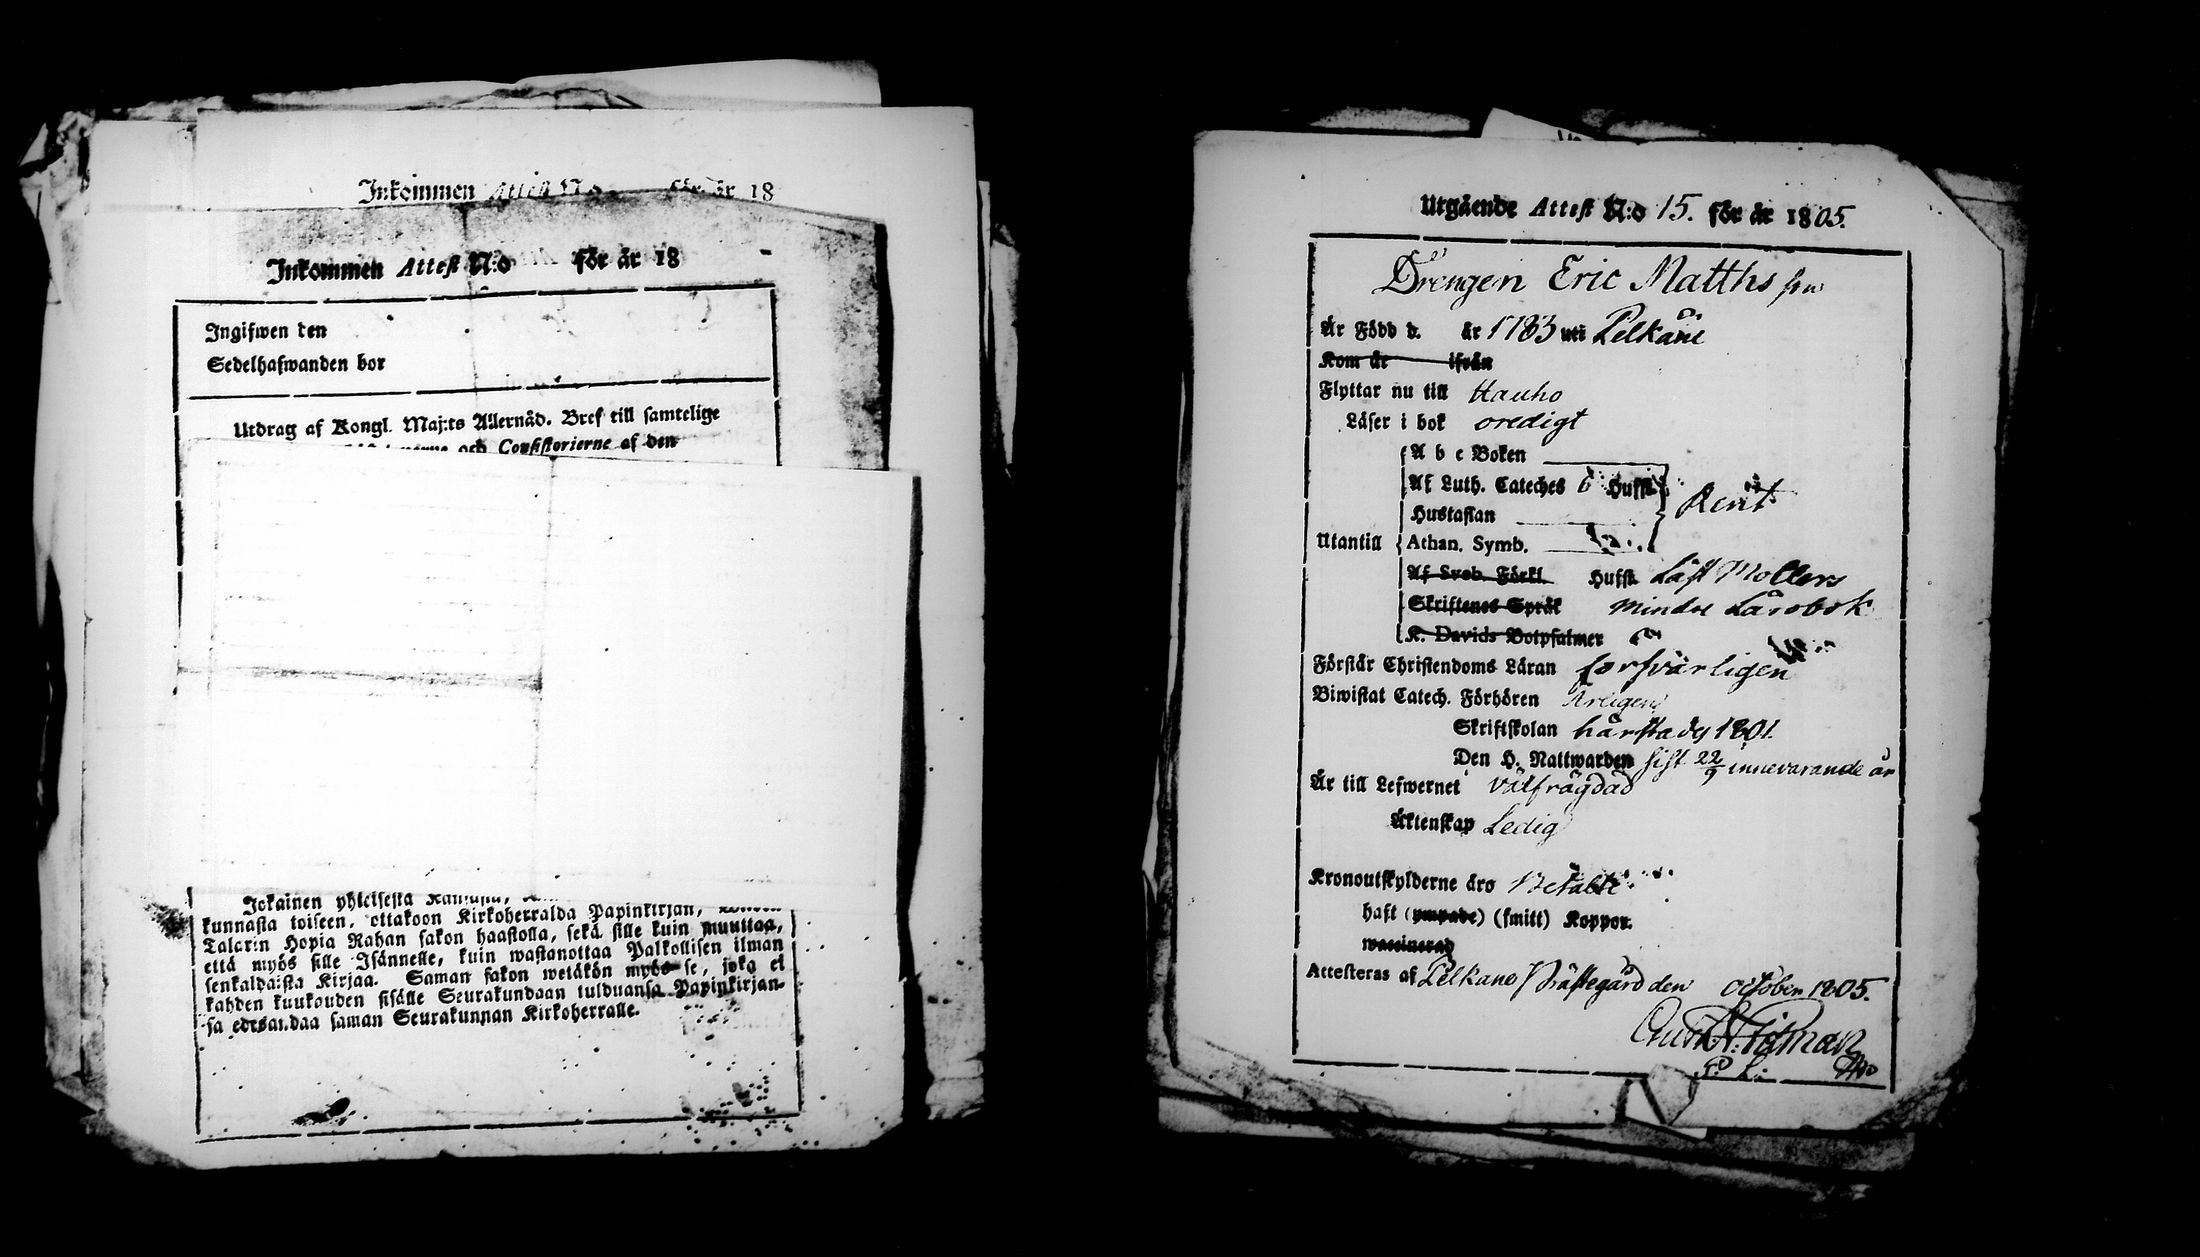 Inkommen Attest N:o för år 18
Inkommen Attest N:o för år 18
Ingifwen den
Sedelhafwanden bor
Utdrag af Kongl. Maj:ts Allernåd. Bref till samtelige
och Consistorierne af den
Jokainen yhteisestä
kunnasta toiseen, ottakoon Kirkoherralda Papinkirjan,
Talarin Hopia Rahan sakon haastolla, sekä sille kuin muuttaa,
että myös sille Isännelle, kuin wastanottaa Palkollisen ilman
senkaldaista Kirjaa. Saman sakon wetäkön myös se, joka ei
kahden kuukouden sisälle Seurakundaan tulduansa Papinkirjan-
sa edesandaa saman Seurakunnan Kirkoherralle.
Utgående Attest N:o 15. för år 1805.
Drengen Eric Matthsson
Är Född d. år 1783 uti Pelkäne
Kom år ifrån
Flyttar nu till Hauho
Läser i bok oredigt
A b c Boken
Af Luth. Cateches 6 Hufst.
Hustaflan
Rent
Utantill Athan. Symb.
Af Sveb. Förkl. Hufst. Läst Möllers
Skriftenes Språk mindre Lärobok
K. Davids Botpsalmer
Förstår Christendoms Läran försvarligen
Biwistat Catech. Förhören Årligen
Skriftskolan härstädes 1801.
Den H. Nattwarden sist 22/9 innevarande år
Är till Lefwernet välfrägdad
Äktenskap Ledig
Kronoutskylderne äro Betalte
haft (ympade) (smitt) Koppor.
waccinerad
Attesteras af Pelkäne Prästegård den October 1805.